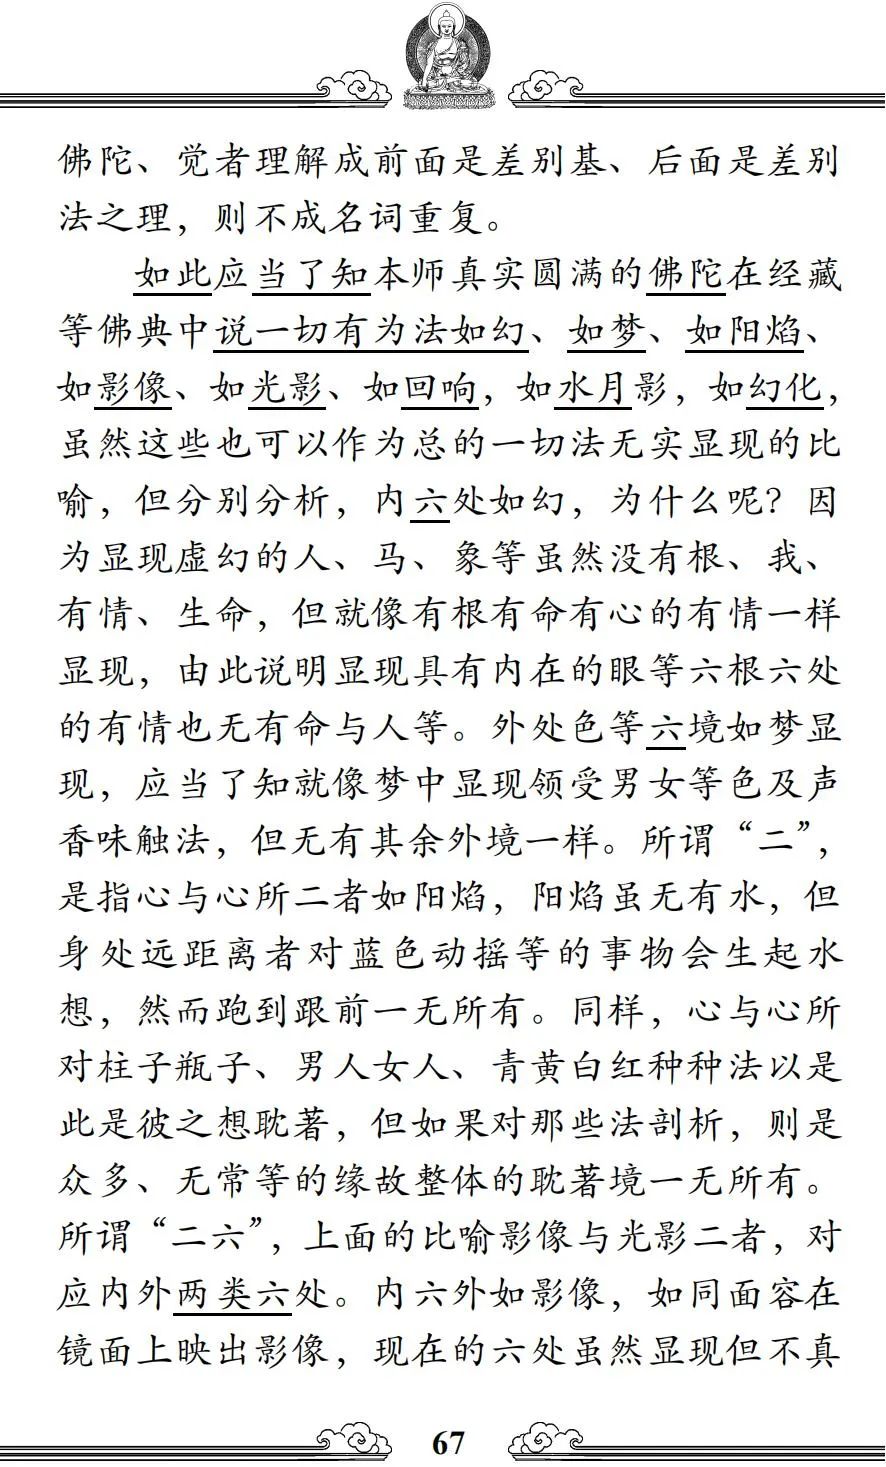 佛陀、觉者理解成前面是差别基、后面是差别
法之理，则不成名词重复。
如此应当了知本师真实圆满的佛陀在经藏
等佛典中说一切有为法如幻、如梦、如阳焰、
如影像、如光影、如回响，如水月影，如幻化，
虽然这些也可以作为总的一切法无实显现的比
喻，但分别分析，内六处如幻，为什么呢？因
为显现虚幻的人、马、象等虽然没有根、我、
有情、生命，但就像有根有命有心的有情一样
显现，由此说明显现具有内在的眼等六根六处
的有情也无有命与人等。外处色等六境如梦显
现，应当了知就像梦中显现领受男女等色及声
香味触法，但无有其余外境一样。所谓“二”，
是指心与心所二者如阳焰，阳焰虽无有水，但
身处远距离者对蓝色动摇等的事物会生起水
想，然而跑到跟前一无所有。同样，心与心所
对柱子瓶子、男人女人、青黄白红种种法以是
此是彼之想耽著，但如果对那些法剖析，则是
众多、无常等的缘故整体的耽著境一无所有。
所谓“二六”，上面的比喻影像与光影二者，对
应内外两类六处。内六外如影像，如同面容在
镜面上映出影像，现在的六处虽然显现但不真
67